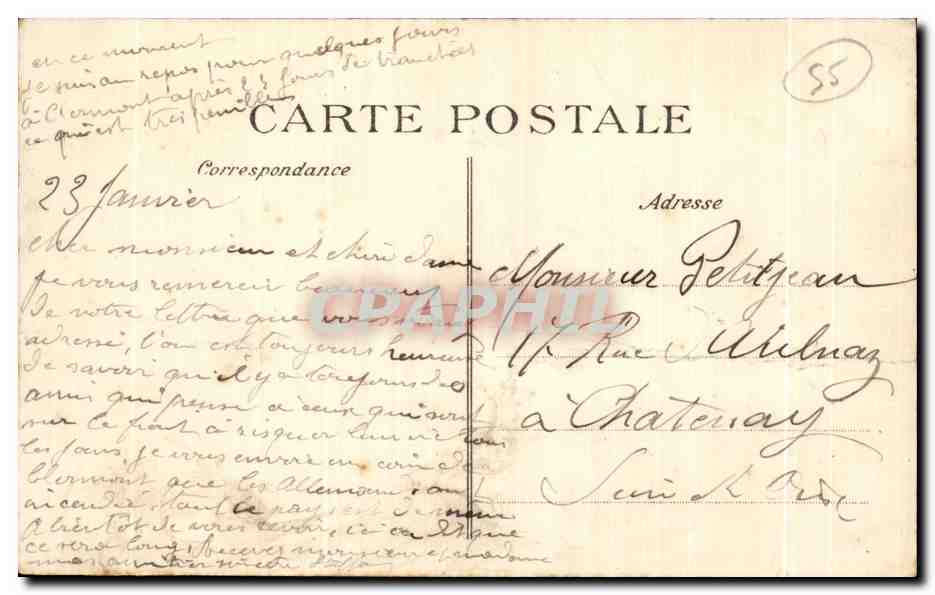 en ce moment
je suis au repos pour quelques jours
à Clermont après 23 jours de tranchées
ce qui est très
55
CARTE POSTALE
Correspondance
Adresse
23 Janvier
cher monsieur et chère dame
je vous remercie beaucoup
de votre lettre que vous
adressé, l'on est toujours heureuse
de savoir qu'il y a toujours des
amis qui pense à ceux qui sont
sur le front à risquer leur vie tous
les jours, je vous envoie un coin de
Clermont que les Allemands ont
incendié, tout le pays est de même
A bientôt de vous revoir, ici on dit que
ce sera long, Recevez monsieur et madame
Monsieur Petitjean
17 Rue Aulnay
à Chatenay
Seine & Oise
CPAPHIL